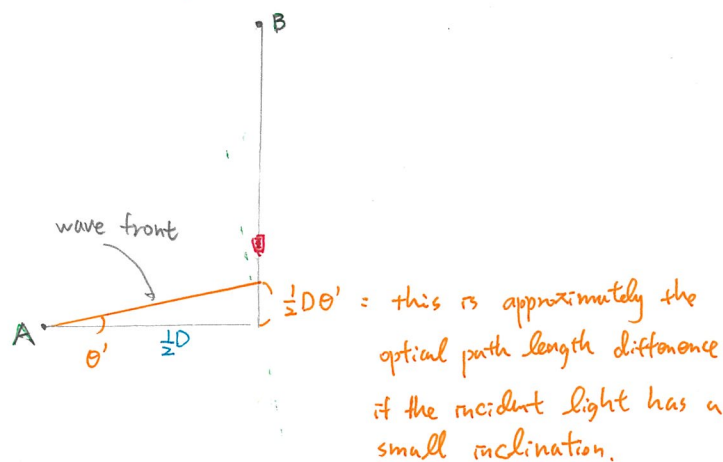 B
wave front
A
θ'
½D
½Dθ' = this is approximately the
optical path length difference
if the incident light has a
small inclination.